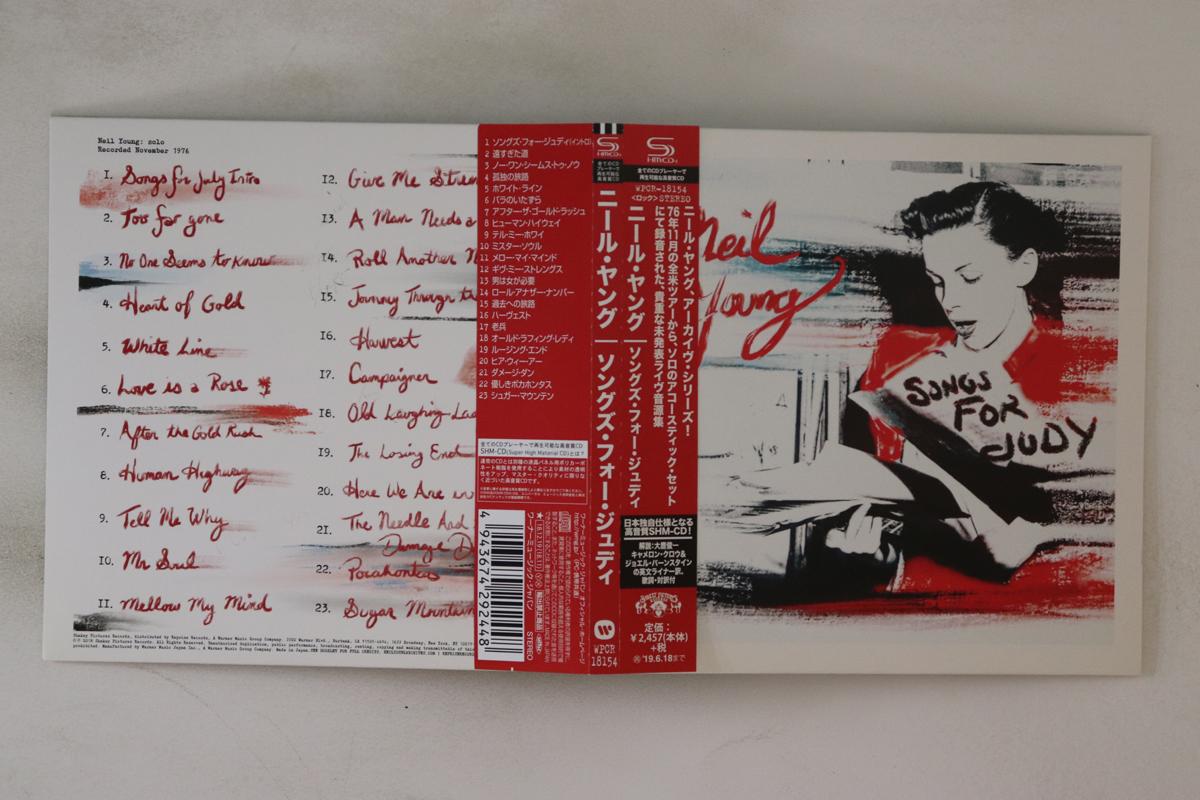 Neil Young: solo
Recorded November 1976
1. Songs for Judy Intro
2. Too far gone
3. No One Seems to know
4. Heart of Gold
5. White Line
6. Love is a Rose
7. After the Gold Rush
8. Human Highway
9. Tell Me Why
10. Mr Soul
11. Mellow My Mind
12. Give Me Stren
13. A Man Needs a
14. Roll Another N
15. Journey Through th
16. Harvest
17. Campaigner
18. Old Laughing Lad
19. The Losing End
20. Here We Are in
21. The Needle And
Damage D
22. Pocahontas
23. Sugar Mountain
1 ソングズ・フォー・ジュディ(イントロ)
2 遠すぎた道
3 ノー・ワン・シームス・トゥ・ノウ
4 孤独の旅路
5 ホワイト・ライン
6 バラのいたずら
7 アフター・ザ・ゴールド・ラッシュ
8 ヒューマン・ハイウェイ
9 テル・ミー・ホワイ
10 ミスター・ソウル
11 メロー・マイ・マインド
12 ギヴ・ミー・ストレングス
13 男は女が必要
14 ロール・アナザー・ナンバー
15 過去への旅路
16 ハーヴェスト
17 老兵
18 オールド・ラフィング・レディ
19 ルージング・エンド
20 ヒア・ウィー・アー
21 ダメージ・ダン
22 優しきポカホンタス
23 シュガー・マウンテン
全てのCDプレーヤーで再生可能な高音質CD
SHM-CD(Super High Material CD)とは?
通常のCDとは別種の液晶パネル用ポリカーボ
ネート樹脂を使用することにより素材の透明
性をアップ。マスター・クオリティに限りな
く近づいた高音質CDです。
4 943674 292448
STEREO
ワーナーミュージック・ジャパン
SHM-CD
全てのCD
プレーヤーで
再生可能な
高音質CD
ニール・ヤング│ソングズ・フォー・ジュディ
WPCR
18154
SHM-CD
全てのCDプレーヤーで
再生可能な高音質CD
WPCR-18154
<ロック>STEREO
ニール・ヤング、アーカイヴ・シリーズ!
76年11月の全米ツアーから、ソロのアコースティック・セット
にて録音された、貴重な未発表ライヴ音源集
ニール・ヤング│ソングズ・フォー・ジュディ
日本独自仕様となる
高音質SHM-CD!
解説:大鷹俊一
キャメロン・クロウ&
ジョエル・バーンスタイン
の英文ライナー訳、
歌詞・対訳付
定価:
¥2,457(本体)
+税
'19.6.18まで
Neil
Young
SONGS
FOR
JUDY